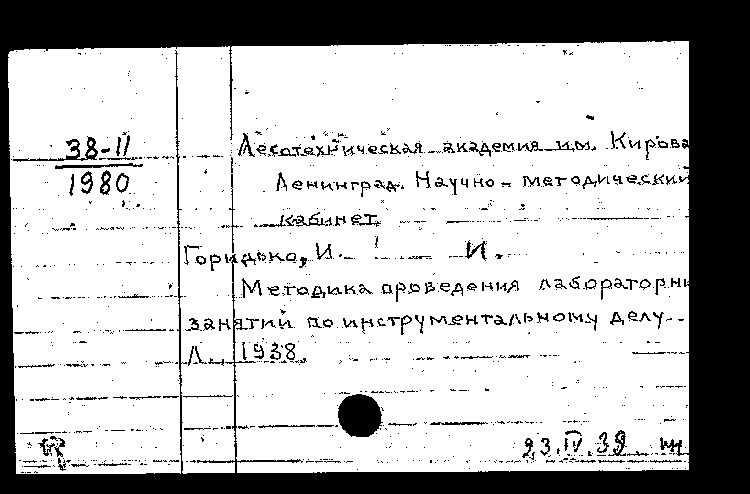 38-11
1980
Лесотехническая академия им. Кирова
Ленинград. Научно-методический
кабинет.
Горидько, И. И.
Методика проведения лабораторны
занятий по инструментальному делу..
Л., 1938.
23.IV.39.